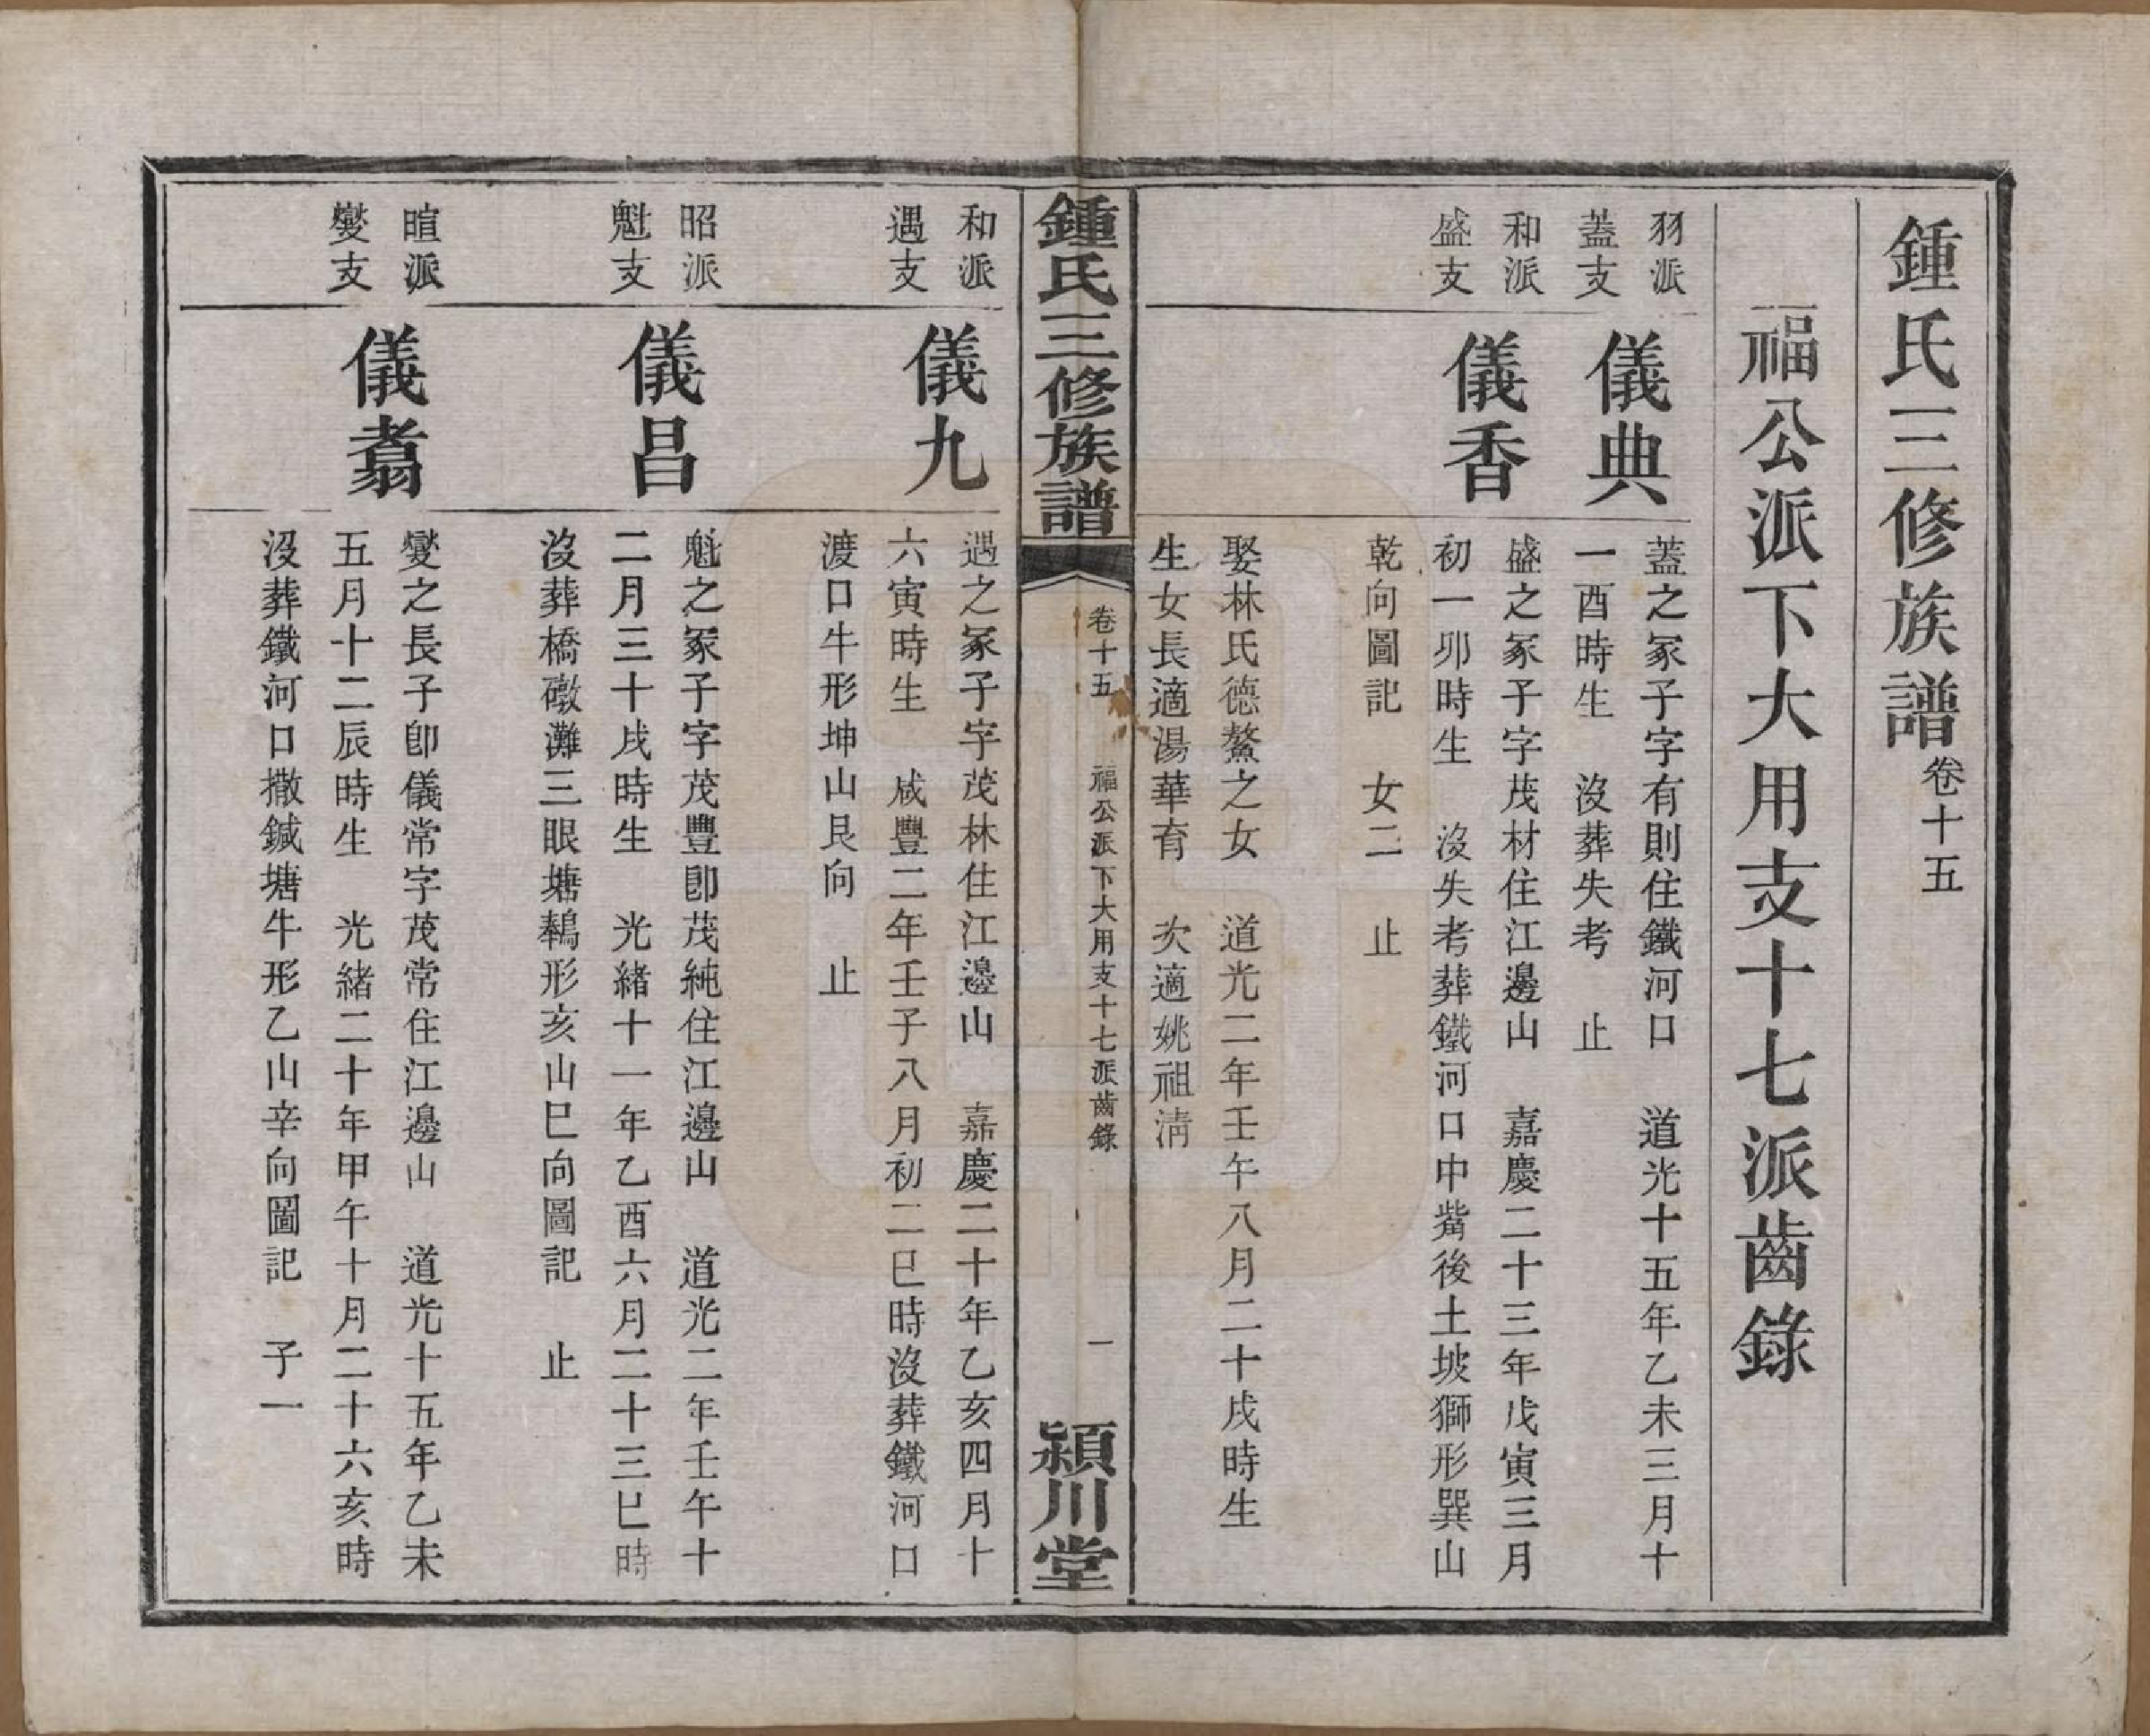 鍾氏三修族譜卷十五
福公派下大用支十七派齒錄
羽派
蓋支
儀典
蓋之冢子字有則住鐵河口 道光十五年乙未三月十
一酉時生 沒葬失考 止
和派
盛支
儀香
盛之冢子字茂材住江邊山 嘉慶二十三年戊寅三月
初一卯時生 沒失考葬鐵河口中嘴後土坡獅形巽山
乾向圖記 女二 止
娶林氏德鰲之女 道光二年壬午八月二十戌時生
生女長適湯華育 次適姚祖淸
鍾氏三修族譜
卷十五 福公派下大用支十七派齒錄 一
潁川堂
和派
遇支
儀九
遇之冢子字茂林住江邊山 嘉慶二十年乙亥四月十
六寅時生 咸豐二年壬子八月初二巳時沒葬鐵河口
渡口牛形坤山艮向 止
昭派
魁支
儀昌
魁之冢子字茂豐卽茂純住江邊山 道光二年壬午十
二月三十戌時生 光緒十一年乙酉六月二十三巳時
沒葬橋礅灘三眼塘鵝形亥山巳向圖記 止
暄派
變支
儀翥
變之長子卽儀常字茂常住江邊山 道光十五年乙未
五月十二辰時生 光緒二十年甲午十月二十六亥時
沒葬鐵河口撒鍼塘牛形乙山辛向圖記 子一